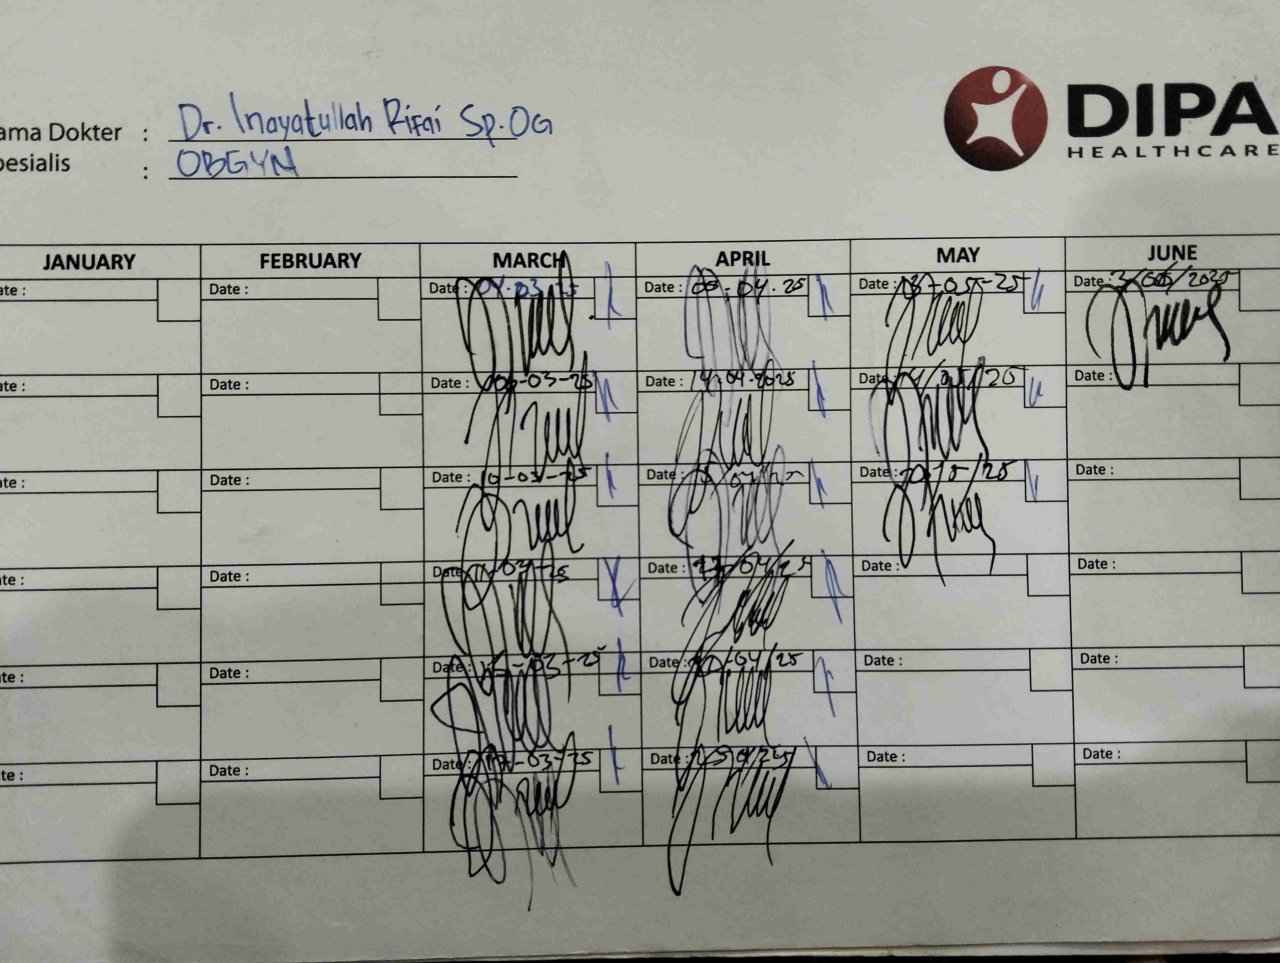 DIPA
HEALTHCARE
ama Dokter : Dr. Inayatullah Rifai Sp.OG
pesialis : OBGYN
JANUARY FEBRUARY MARCH APRIL MAY JUNE
ate : Date : Date : 04-03-25 Date : 04.25 Date : -05-25 Date : 3/06/2025
ate : Date : Date : -03-25 Date : 14-04-2025 Date : /25 Date :
ate : Date : Date : 10-03-25 Date : Date : /25 Date :
ate : Date : Date : -25 Date : /04/ Date : Date :
ate : Date : Date : -03-25 Date : /04/25 Date : Date :
te : Date : Date : -03-25 Date : Date : Date :